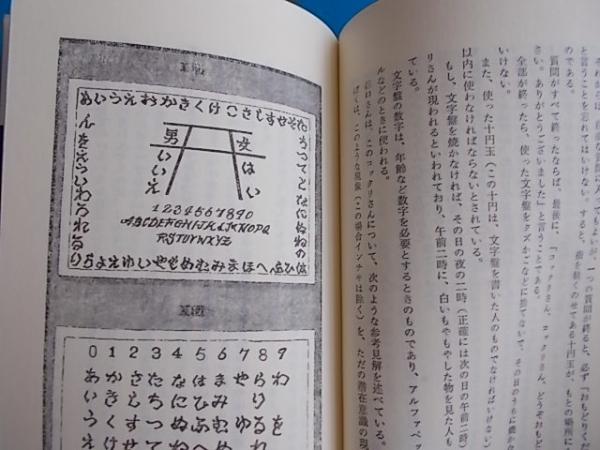 質問に入ってもよいが、一つの質問が終ると、必ず「おもどりくだ
と言うことを忘れてはいけない。すると、のせてある十円玉が、もとの場所に
のである。
質問がすべて終ったならば、最後に、「コックリさん、コックリさん、どうぞおもど
さい。ありがとうございました」と言うことである。
全部が終ったら、使った文字盤をクズかごなどに捨てないで、その日のうちに焼か
いけない。
また、使った十円玉（この十円は、文字盤を書いた人のものでなければいけない）
以内に使わなければならないとされている。
もし、文字盤を焼かなければ、その日の夜の二時（正確には次の日の午前二時）
リさんが現われるといわれており、午前二時に、白いもやもやした物を見た人も
ている。
文字盤の数字は、年齢など数字を必要とするときのものであり、アルファベッ
ルなどのときに使われる。
さんは、このコックリさんについて、次のような参考見解を述べている。
ぼくは、このような現象（この場合インチキは除く）を、ただの潜在意識の現
あいうえおかきくけこさしすせそた
ちつてとなにぬねの
はひふへほまみむめもやいゆえよ
らりるれろわいうえをん
男
女
いいえ
はい
1234567890
ABCDEFGHIJKLMNOPQ
RSTUVWXYZ
0 1 2 3 4 5 6 7 8 9
あかさたなはまやらわ
いきしちにひみ り
うくすつぬふむゆるを
えけせてねへめ れ